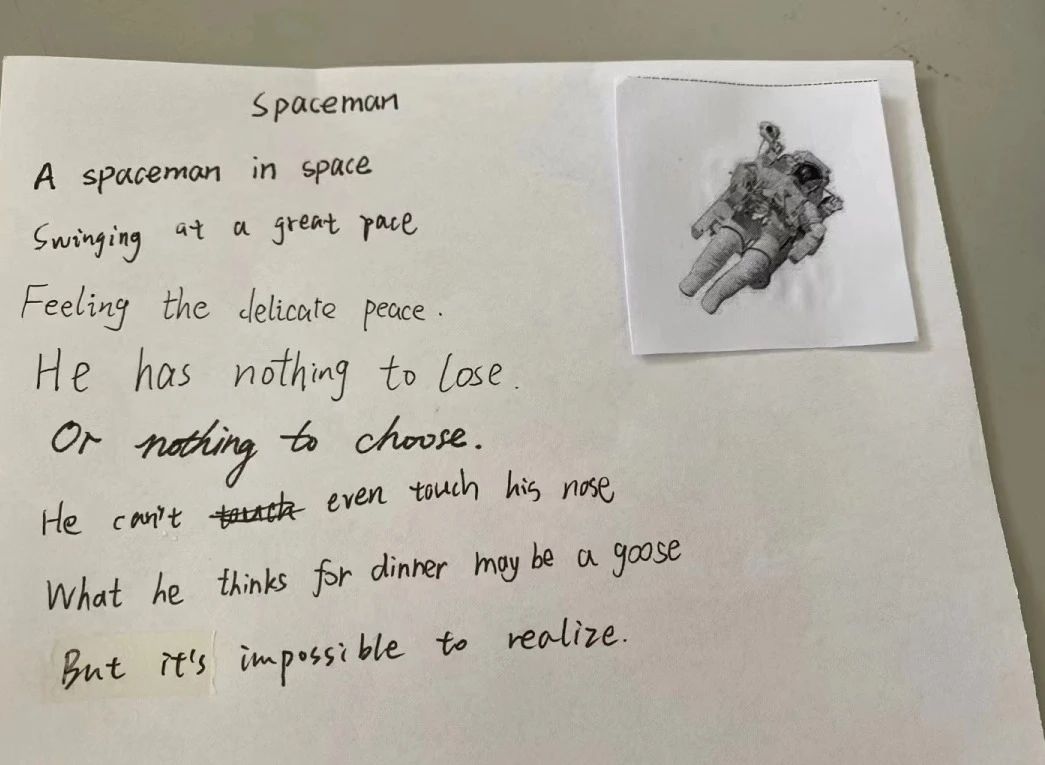 Spaceman
A spaceman in space
Swinging at a great pace
Feeling the delicate peace.
He has nothing to lose.
Or nothing to choose.
He can't touch even touch his nose
What he thinks for dinner may be a goose
But it's impossible to realize.